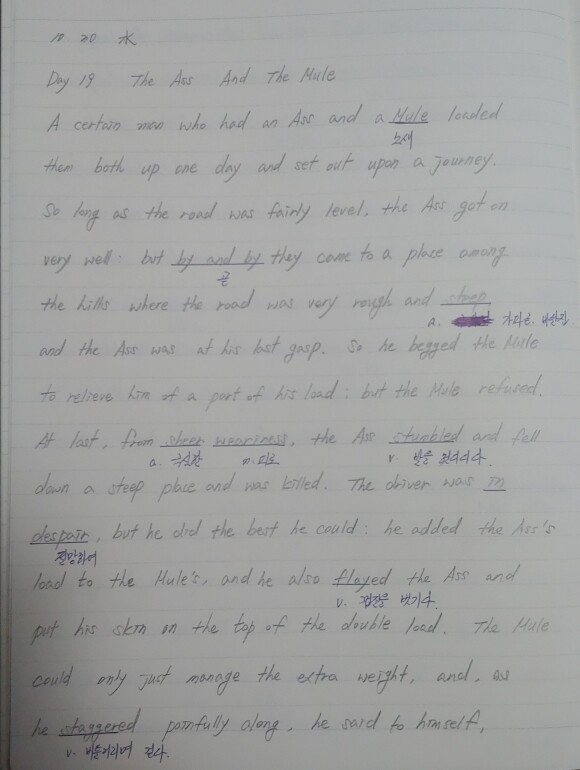 10 20 水
Day 19 The Ass And The Mule
A certain man who had an Ass and a Mule loaded
노새
them both up one day and set out upon a journey.
So long as the road was fairly level, the Ass got on
very well: but by and by they came to a place among
곧
the hills where the road was very rough and steep,
a. 가파른.
and the Ass was at his last gasp. So he begged the Mule
to relieve him of a part of his load: but the Mule refused.
At last, from sheer weariness, the Ass stumbled and fell
a. 극심한 n. 피로 v. 발을 헛디디다.
down a steep place and was killed. The driver was in
despair, but he did the best he could: he added the Ass's
절망하여
load to the Mule's, and he also flayed the Ass and
v. 껍질을 벗기다.
put his skin on the top of the double load. The Mule
could only just manage the extra weight, and, as
he staggered painfully along, he said to himself,
v. 비틀거리며 걷다.